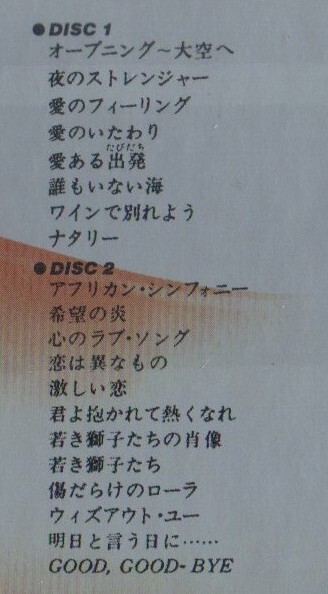 ●DISC 1
オープニング～大空へ
夜のストレンジャー
愛のフィーリング
愛のいたわり
たびだち
愛ある出発
誰もいない海
ワインで別れよう
ナタリー
●DISC 2
アフリカン・シンフォニー
希望の炎
心のラブ・ソング
恋は異なもの
激しい恋
君よ抱かれて熱くなれ
若き獅子たちの肖像
若き獅子たち
傷だらけのローラ
ウィズアウト・ユー
明日と言う日に……
GOOD, GOOD-BYE